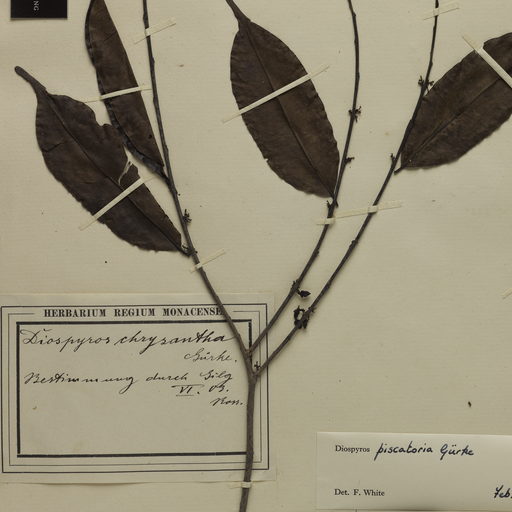 NG
HERBARIUM REGIUM MONACENSE
Diospyros chrysantha
Gürke.
Bestimmung durch Gilg
VI. 03.
Diospyros piscatoria Gürke
Det. F. White
Feb.